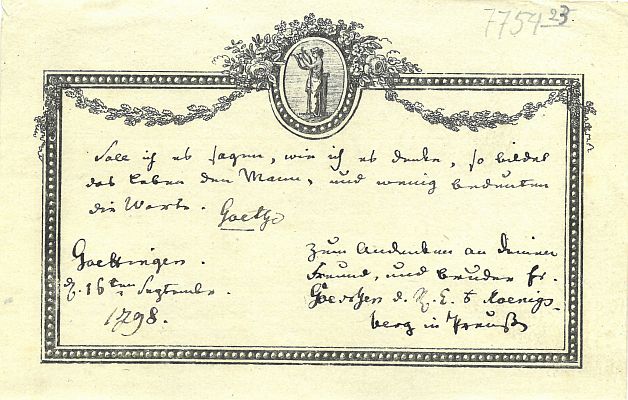 7754 23
Soll ich es sagen, wie ich es denke, so bildet
das Leben den Mann, und wenig bedeuten
die Worte. Goethe
Goettingen.
d. 16ten Septembr.
1798.
Zum Andenken an Deinen
Freund, und Bruder Fr.
d. R. C. Koenigs-
berg in Preußen